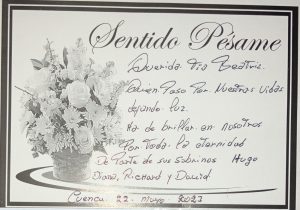 Sentido Pésame
Querida Tía Beatriz.
Paso Por Nuestras Vidas
dejando luz.
Ha de brillar en nosotros
Por toda la eternidad
De Parte de sus sobrinos Hugo
Diana, Richard y David
Cuenca 22 Mayo 2023